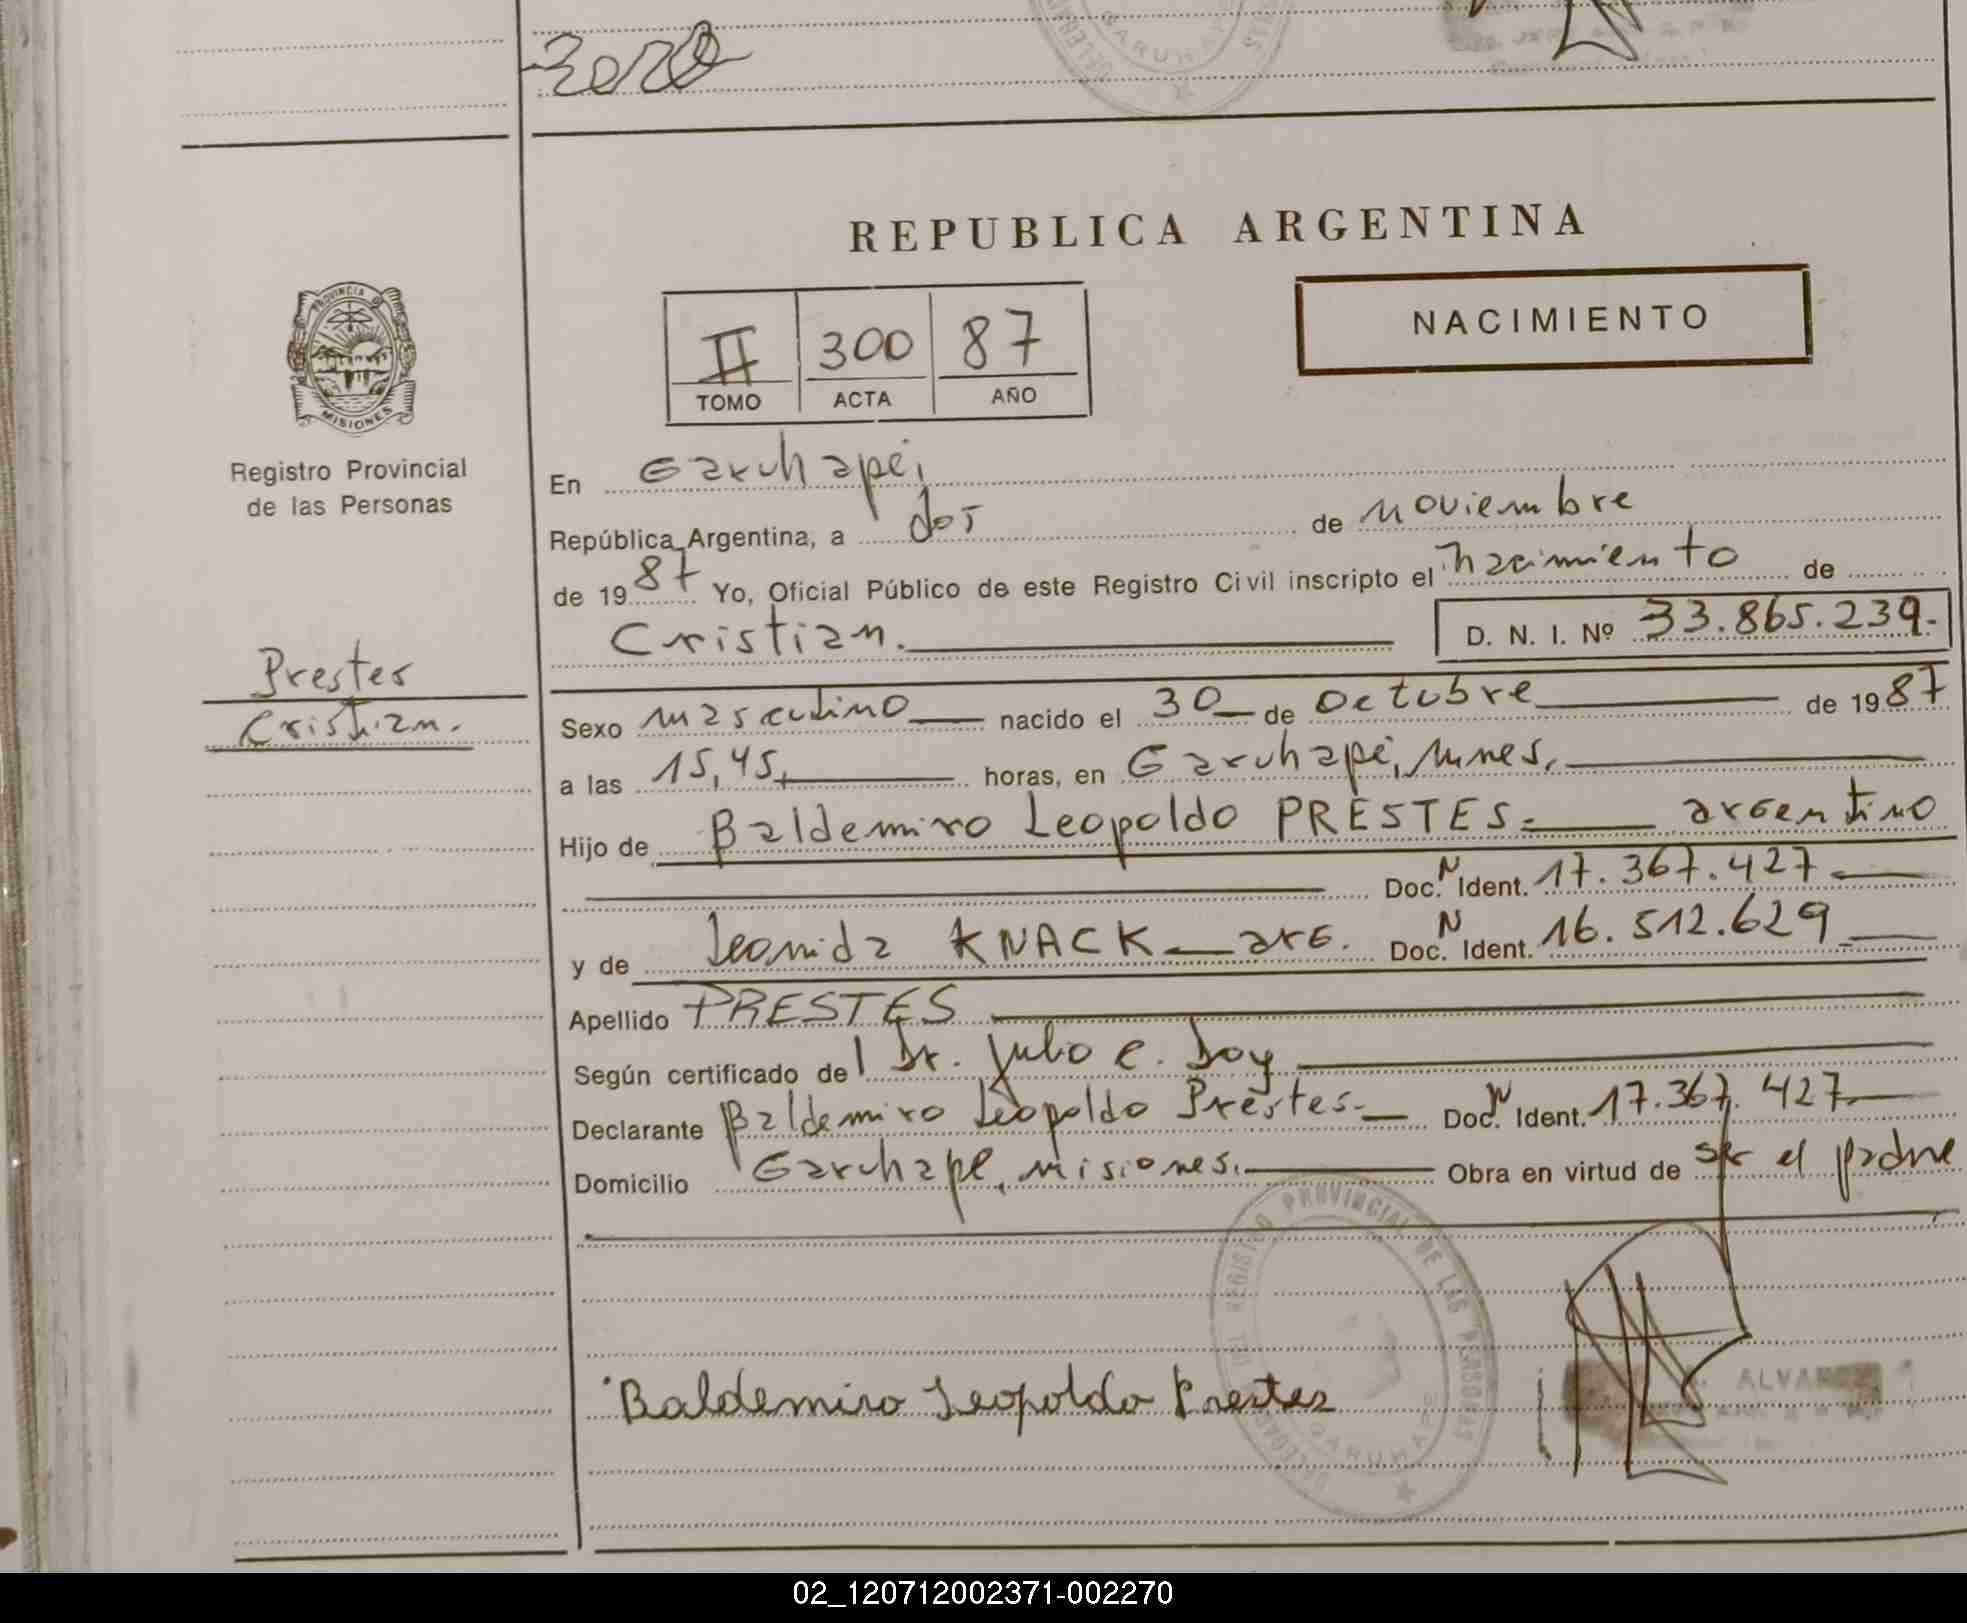 REPUBLICA ARGENTINA
PROVINCIA DE
MISIONES
Registro Provincial
de las Personas
II 300 87
TOMO ACTA AÑO
NACIMIENTO
En Garuhapé,
República Argentina, a dos de noviembre
de 1987 Yo, Oficial Público de este Registro Civil inscripto el nacimiento de
Cristian. D. N. I. Nº 33.865.239.-
Prestes
Cristian.
Sexo masculino nacido el 30 de octubre de 1987
a las 15,45, horas, en Garuhapé, Mnes.
Hijo de Baldemiro Leopoldo PRESTES.- argentino
Doc. N Ident. 17.367.427
y de Leonida KNACK arg. Doc. N Ident. 16.512.629
Apellido PRESTES
Según certificado del Dr. Julio e. Doy
Declarante Baldemiro Leopoldo Prestes- Doc. N Ident. 17.367.427
Domicilio Garuhape, misiones. Obra en virtud de ser el padre
REGISTRO PROVINCIAL DE LAS PERSONAS
GARUHAPE
Baldemiro Leopoldo Prestes
ALVAREZ
02_120712002371-002270